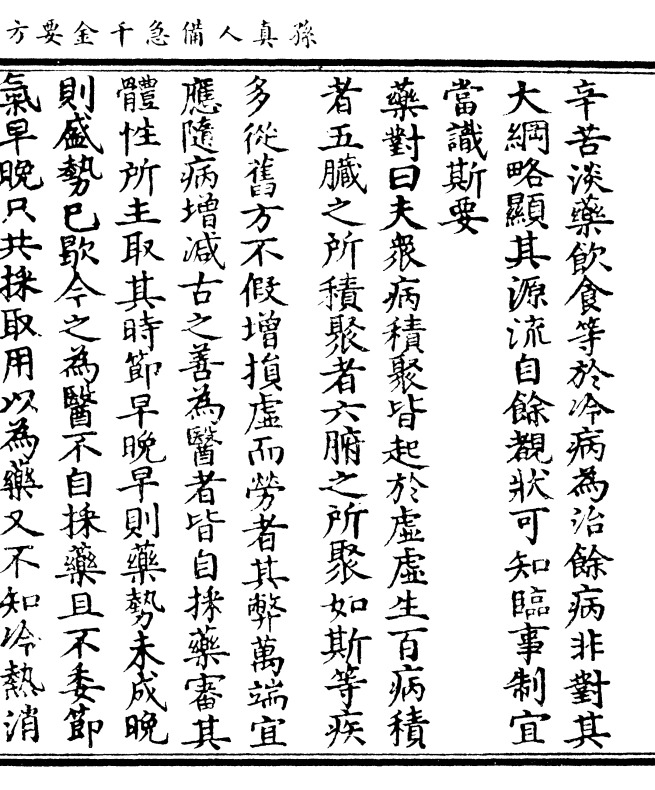 孫真人備急千金要方
辛苦淡藥飲食等於冷病為治餘病非對其
大綱略顯其源流自餘覩狀可知臨事制宜
當識斯要
藥對曰夫衆病積聚皆起於虛虛生百病積
者五臟之所積聚者六腑之所聚如斯等疾
多從舊方不假增損虛而勞者其弊萬端宜
應隨病增減古之善為醫者皆自採藥審其
體性所主取其時節早晚早則藥勢未成晚
則盛勢已歇今之為醫不自採藥且不委節
氣早晚只共採取用以為藥又不知冷熱消